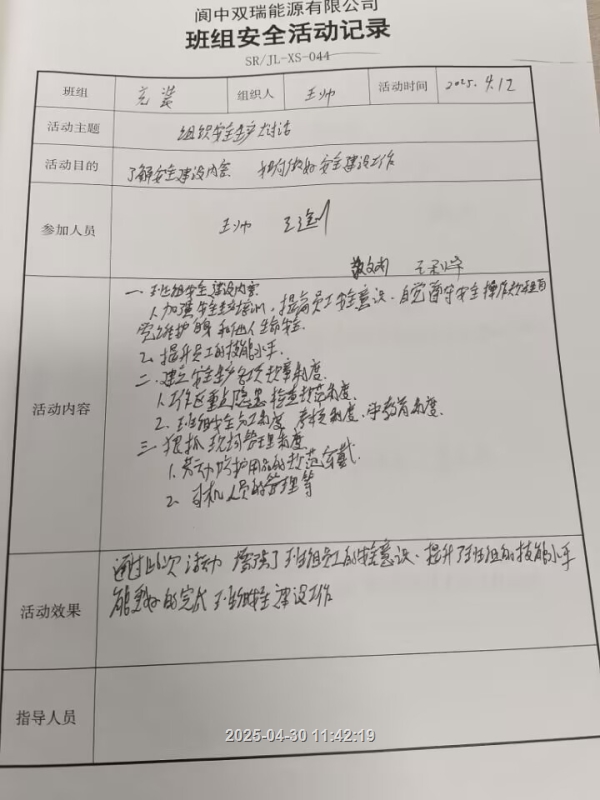 阆中双瑞能源有限公司
班组安全活动记录
SR/JL-XS-044
班组 充装 组织人 王帅 活动时间 2025.4.12
活动主题 组织安全生产大讲话
活动目的 了解安全建设内容 如何做好安全建设工作
参加人员 王帅
活动内容
一、班组安全建设内容
1.加强安全生产培训,提高员工安全意识,自觉遵守安全操作规程自
觉维护自身和他人生命安全.
2、提升员工的技能水平.
二、建立安全生产各项规章制度.
1.工作区重点隐患检查规范制度.
2、班组安全员工制度,考核制度,
三、狠抓现场管理制度
1.劳动防护用品的规范穿戴.
2、司机人员的管理等
活动效果
通过此次活动增强了班组员工的安全意识、提升了班组的技能水平
能更好的完成班组安全建设工作
指导人员
2025-04-30 11:42:19